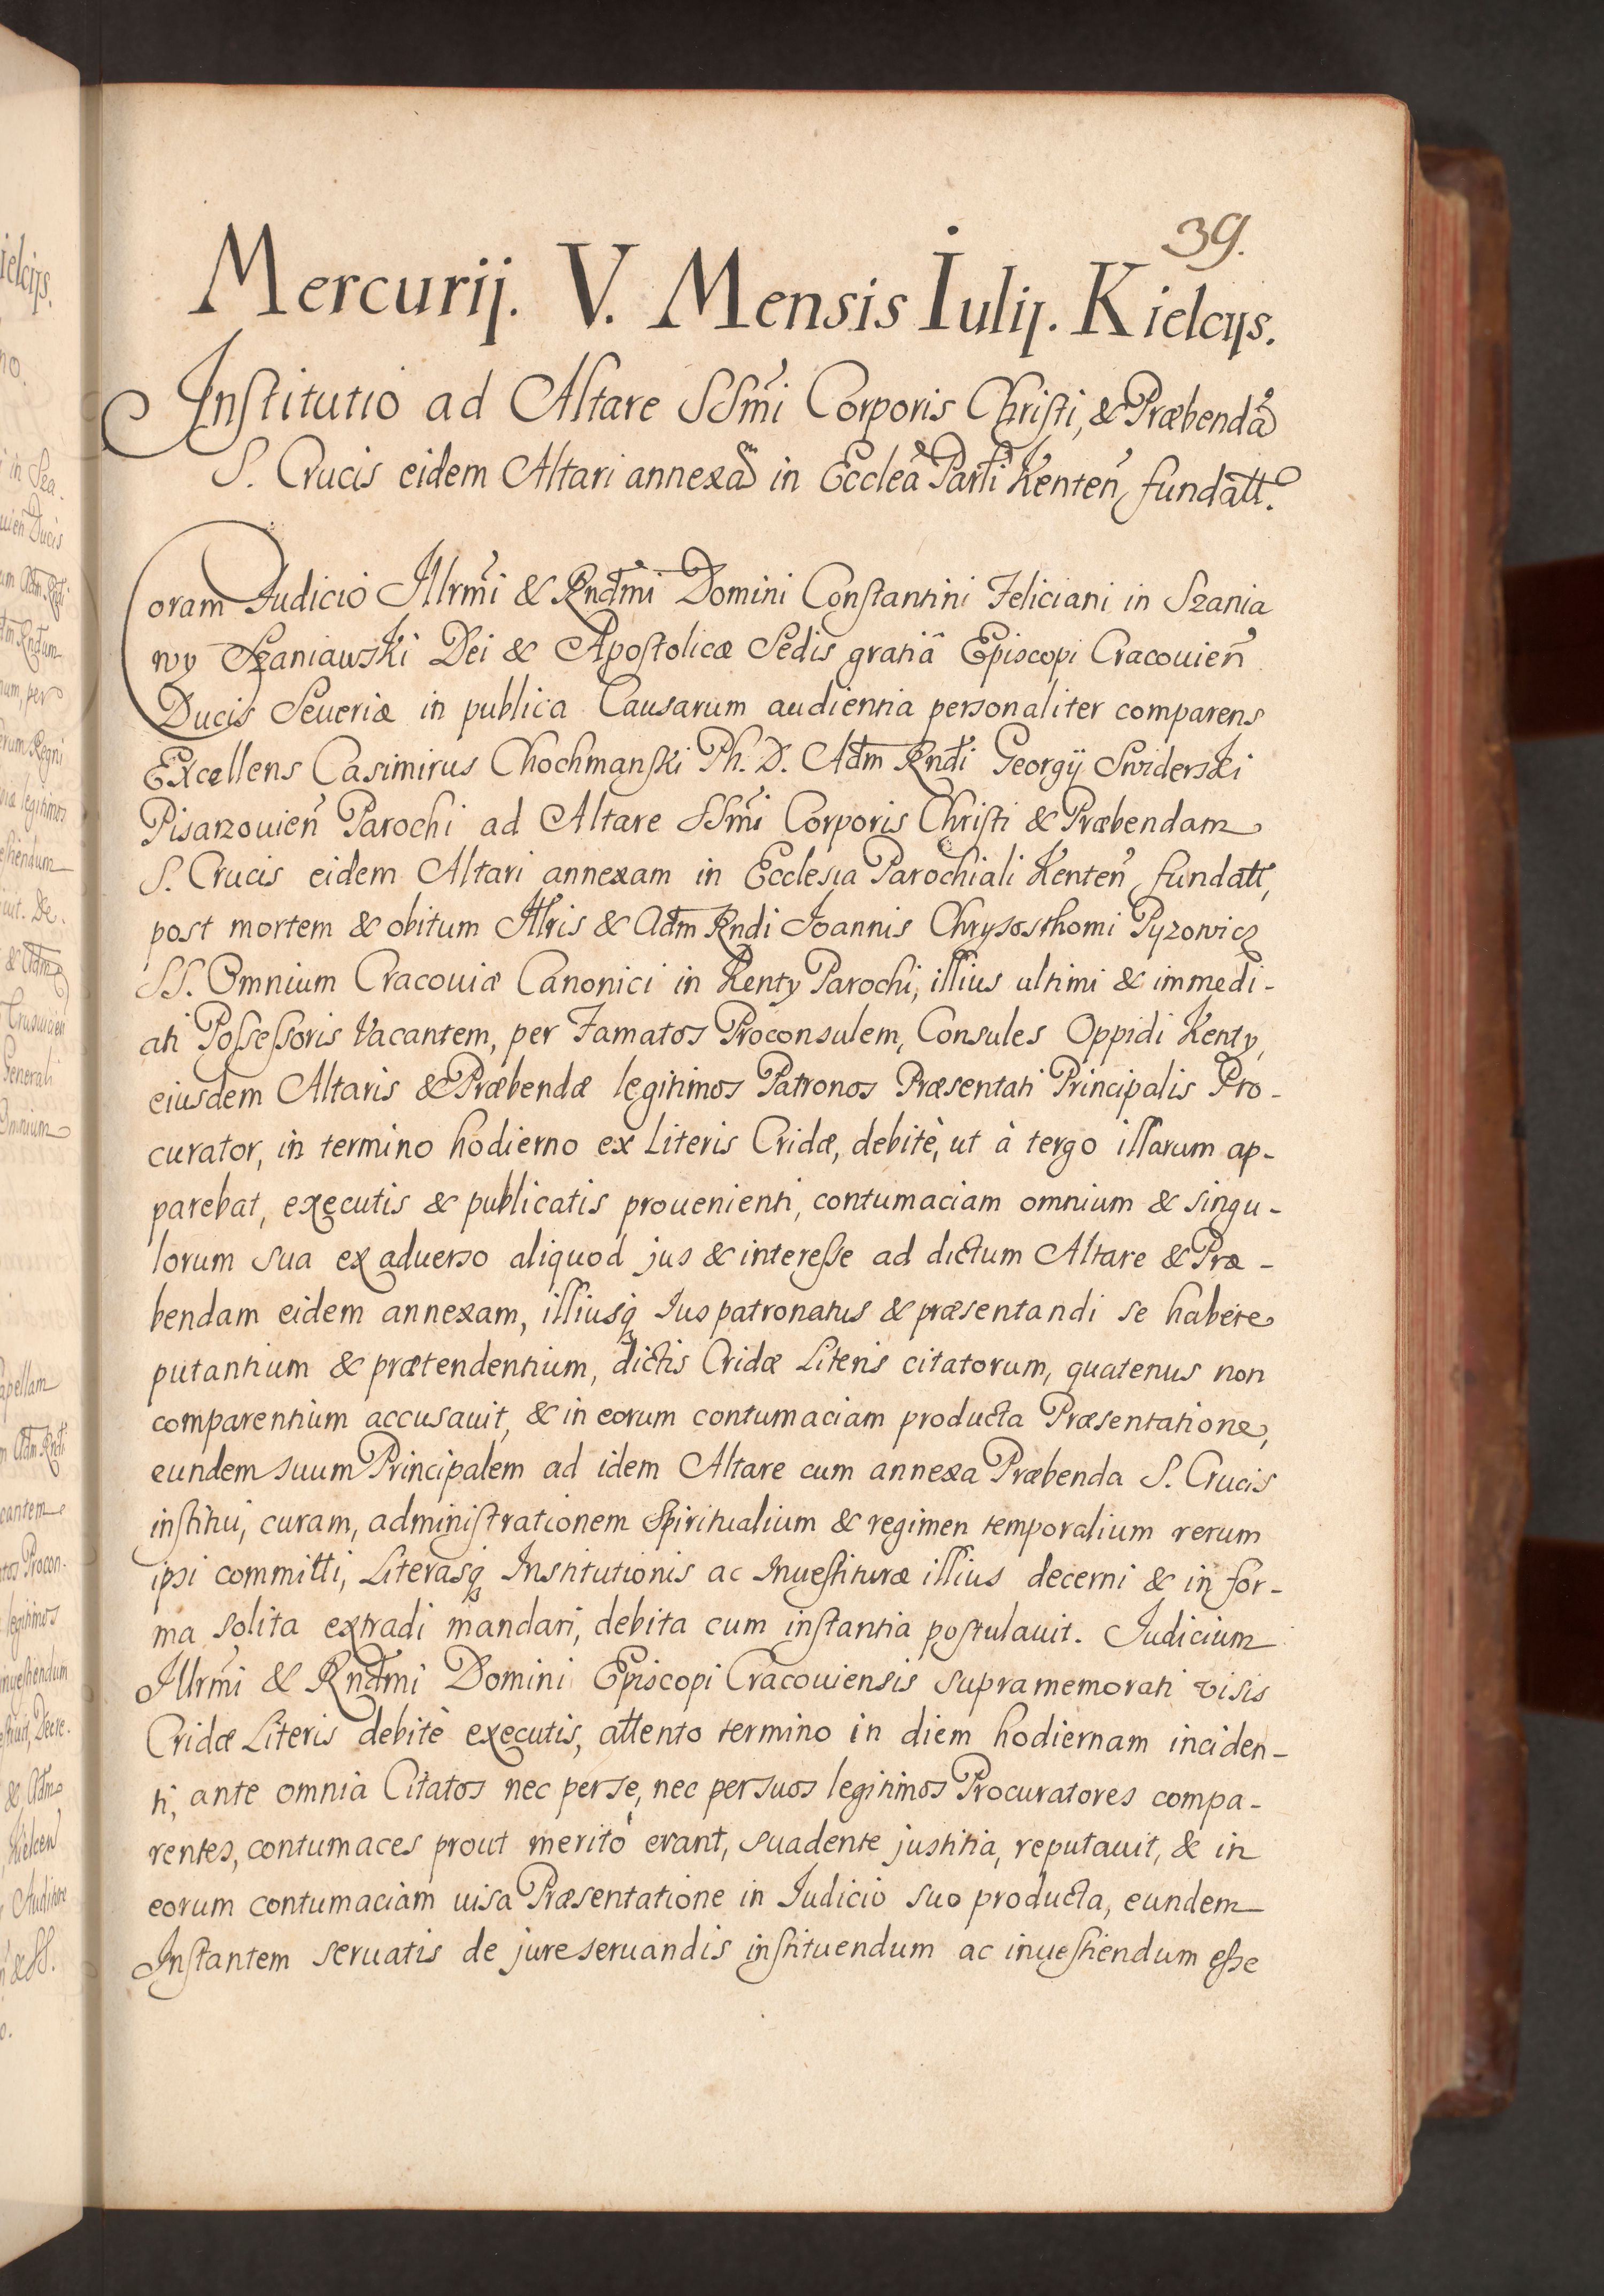 39.
Mercurij. V. Mensis Iulij. Kielcijs.
Institutio ad Altare SSmi Corporis Christi, & Præbendã
S. Crucis eidem Altari annexã in Eccleã Parlĩ Kenteñ fundatt.
Coram Iudicio Illrmi & Rndmi Domini Constantini Feliciani in Szania
wy Szaniawski Dei & Apostolicæ Sedis gratiâ Episcopi Cracouieñ
Ducis Seueriæ in publica Causarum audientia personaliter comparens
Excellens Casimirus Chochmanski Ph. D. Adm Rndi Georgij Swiderski
Pisarzouieñ Parochi ad Altare SSmi Corporis Christi & Præbendam
S. Crucis eidem Altari annexam in Ecclesia Parochiali Kenteñ fundatt,
post mortem & obitum Illris & Adm Rndi Ioannis Chrysosthomi Pyzowicz
SS. Omnium Cracouiæ Canonici in Kenty Parochi, illius ultimi & immedi-
ati Possessoris Vacantem, per Famatos Proconsulem, Consules Oppidi Kenty,
eiusdem Altaris & Præbendæ legitimos Patronos Præsentati Principalis Pro-
curator, in termino hodierno ex Literis Cridæ, debitè, ut à tergo illarum ap-
parebat, executis & publicatis prouenienti, contumaciam omnium & singu-
lorum sua ex aduerso aliquod jus & interesse ad dictum Altare & Præ-
bendam eidem annexam, illiusq Ius patronatus & præsentandi se habere
putantium & prætendentium, dictis Cridæ Literis citatorum, quatenus non
comparentium accusauit, & in eorum contumaciam producta Præsentatione,
eundem suum Principalem ad idem Altare cum annexa Præbenda S. Crucis
institui, curam, administrationem Spiritualium & regimen temporalium rerum
ipsi committi, Literasq Institutionis ac Inuestituræ illius decerni & in for-
ma solita extradi mandari, debita cum instantia postulauit. Iudicium
Illrmi & Rndmi Domini Episcopi Cracouiensis supramemorati visis
Cridæ Literis debitè executis, attento termino in diem hodiernam inciden-
ti, ante omnia Citatos nec per se, nec per suos legitimos Procuratores compa-
rentes, contumaces prout meritò erant, suadente justitia, reputauit, & in
eorum contumaciam uisa Præsentatione in Iudicio suo producta, eundem
Instantem seruatis de jure seruandis instituendum ac inuestiendum esse